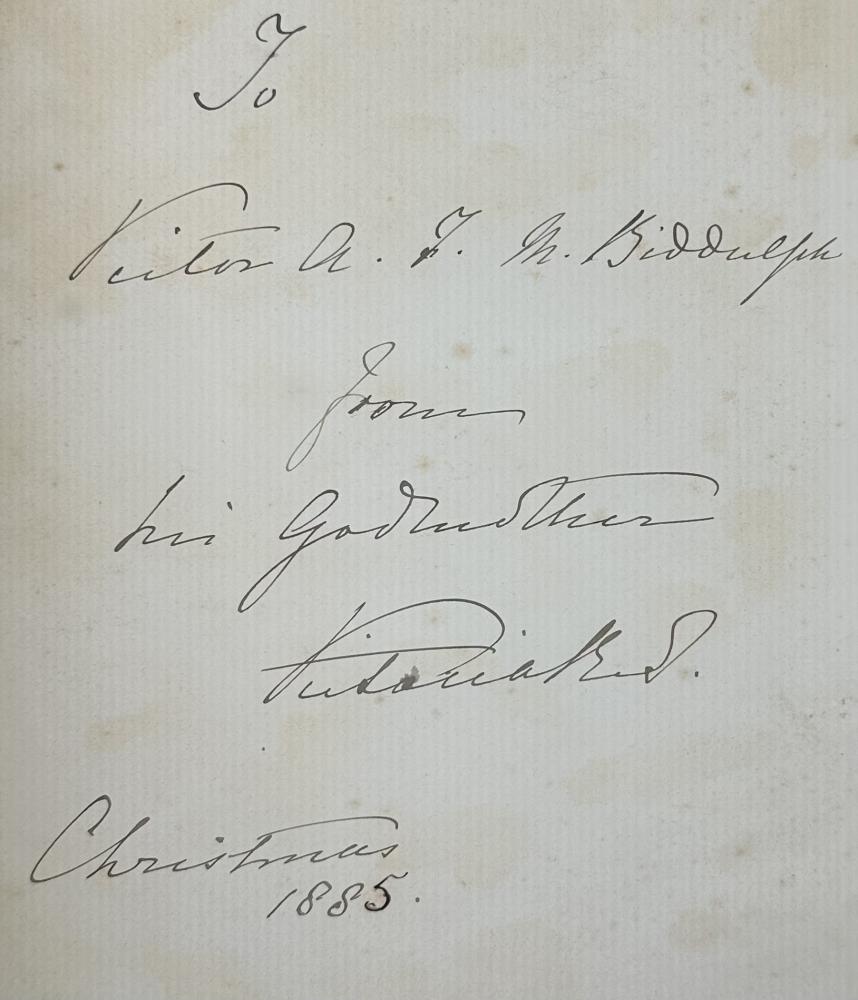 To
Victor A. F. M. Biddulph
from
his Godmother
Victoria R.I.
Christmas
1885.